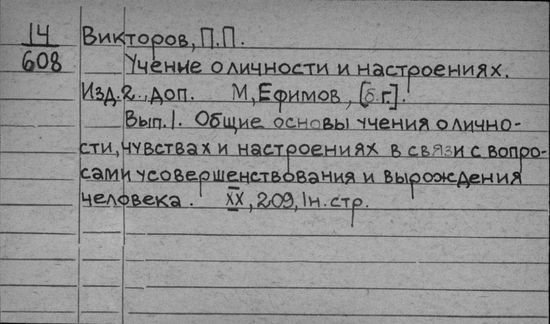 14
608
Викторов, П.П.
Учение о личности и настроениях.
Изд.2., доп. М, Ефимов, [б.г.].
Вып.1. Общие основы учения о лично-
сти, чувствах и настроениях в связи с вопро-
сами усовершенствования и вырождения
человека. XX, 209, 1н.стр.